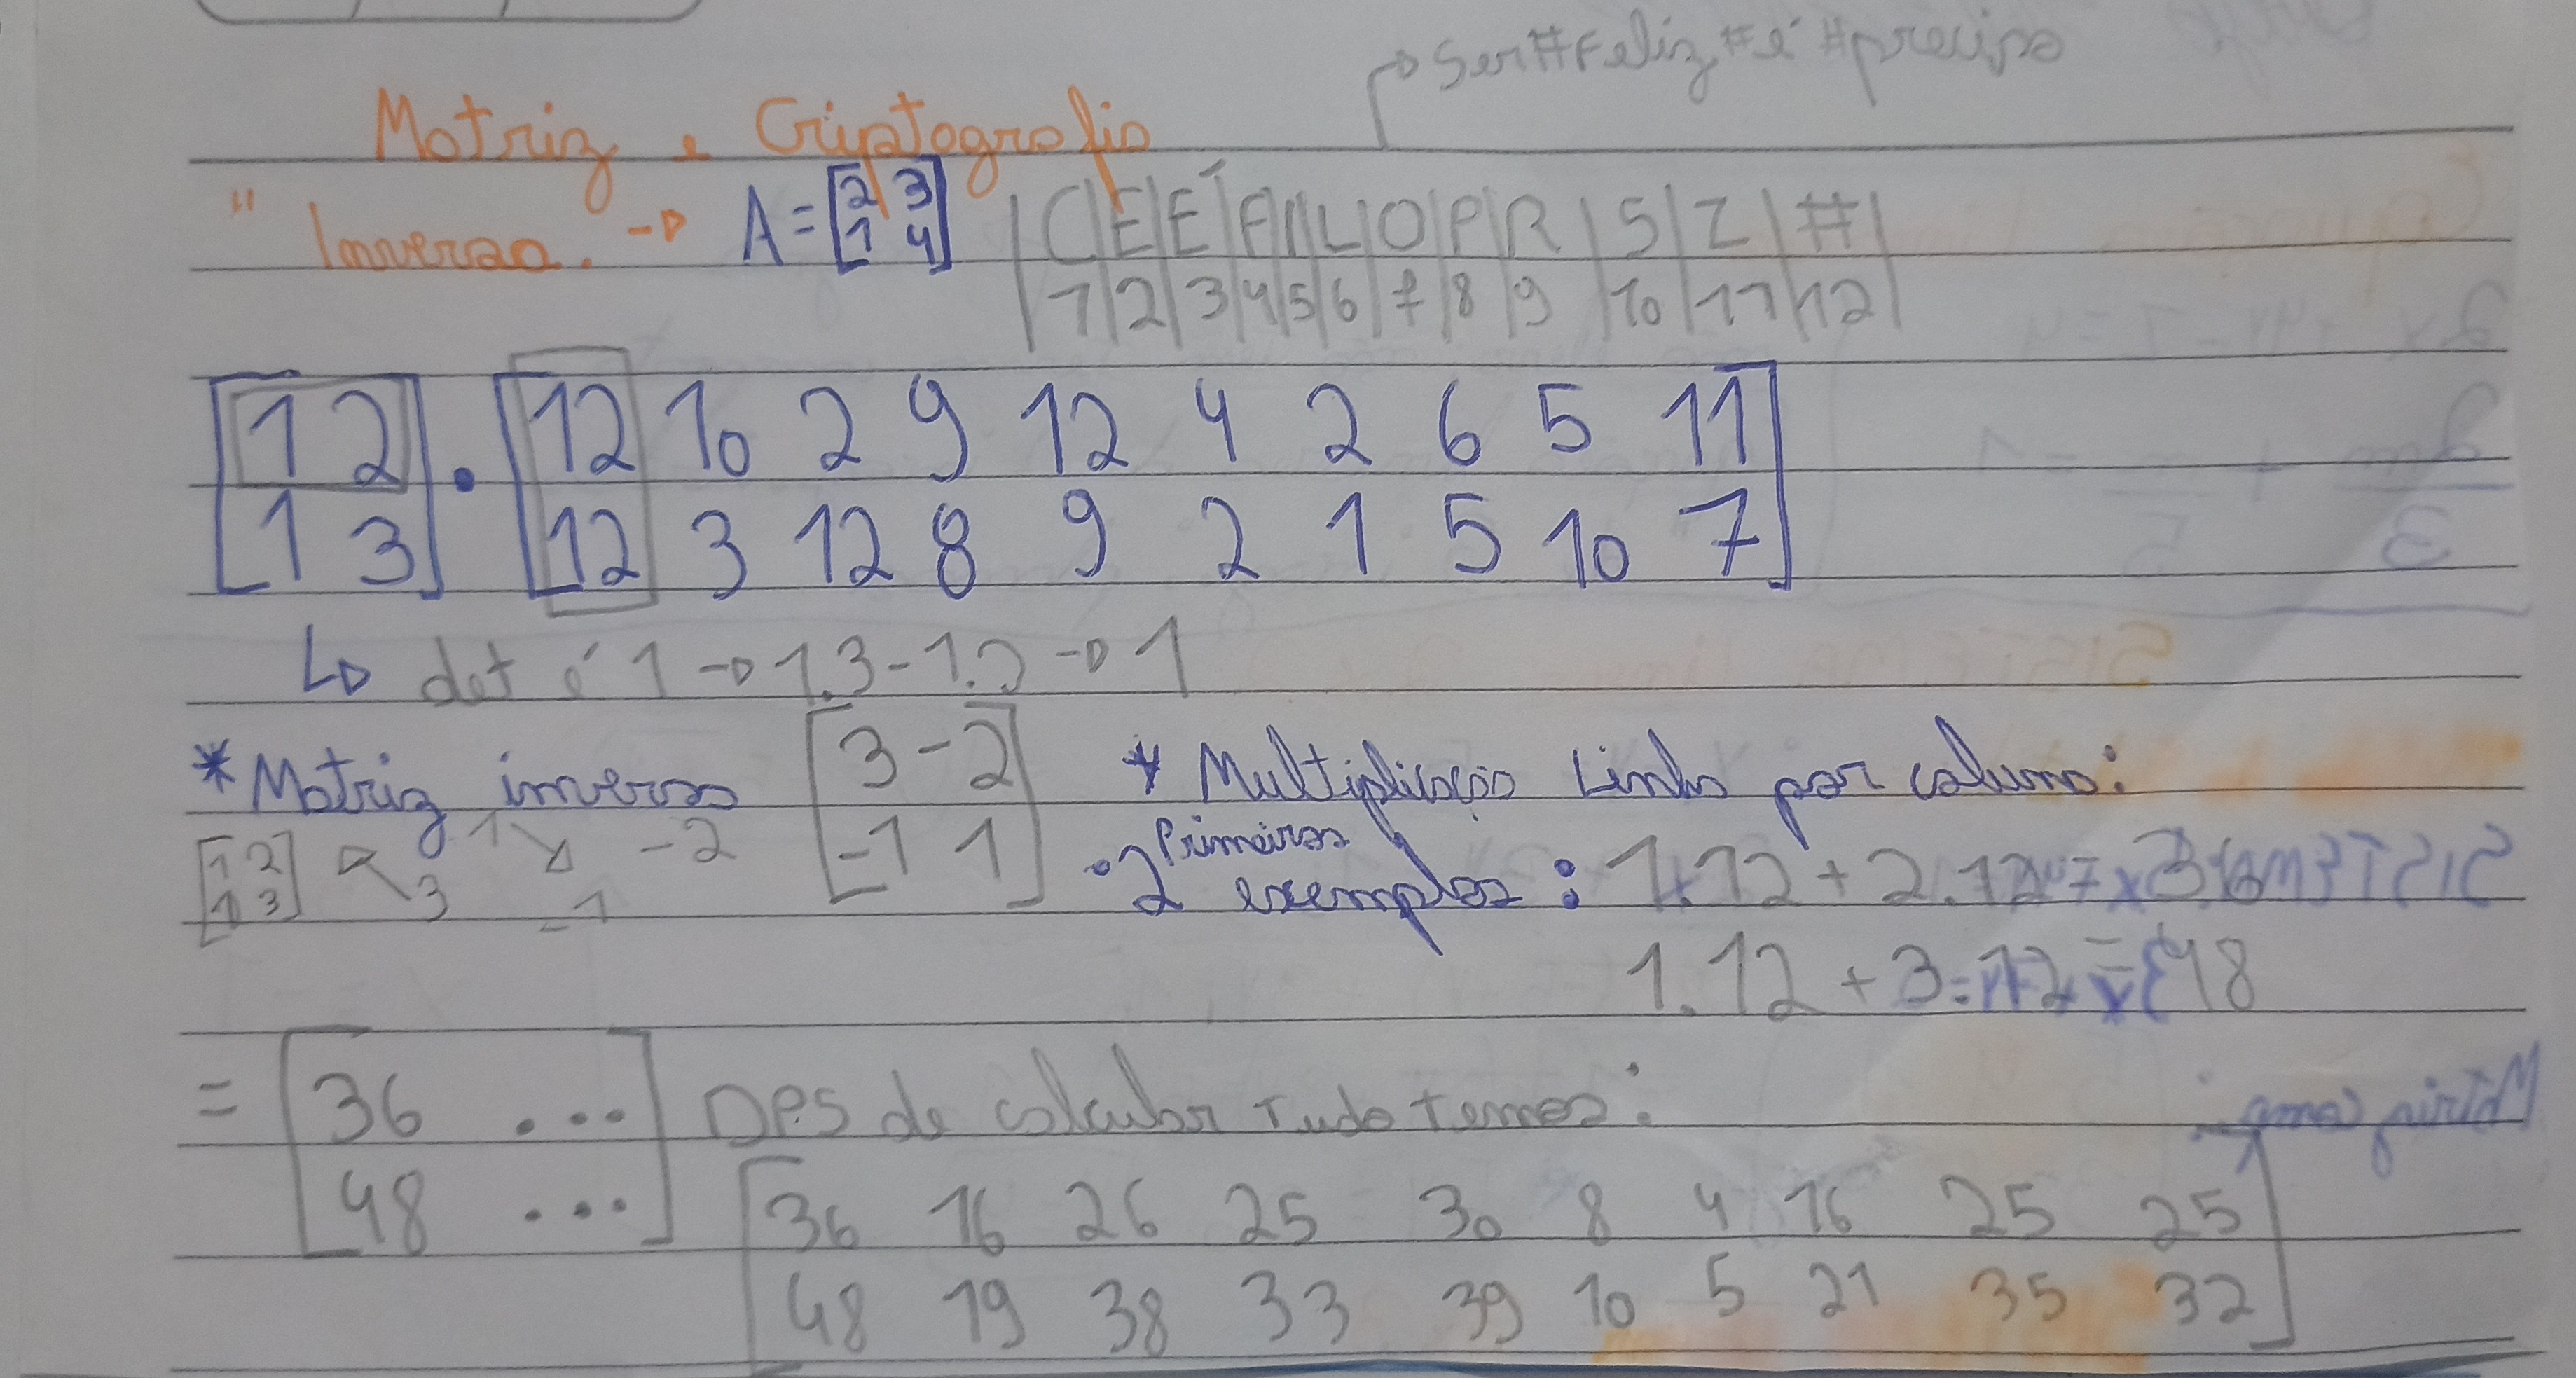 Ser#Feliz#é#preciso
Matriz e Criptografia
" Inversa. → A = [2 3
1 4]
C E É F I L O P R S Z #
1 2 3 4 5 6 7 8 9 10 11 12
[1 2
1 3] . [12 10 2 9 12 4 2 6 5 11
12 3 12 8 9 2 1 5 10 7]
↳ det é 1 → 1.3 - 1.2 → 1
* Matriz inversa [3 -2
-1 1]
[1 2
1 3] 1 3 -2 -1
* Multiplicação Linha por coluna:
· 2 Primeiros exemplos: 1.12 + 2.12 = 36
1.12 + 3.12 = 48
= [36 ...
48 ...] DPS de calcular Tudo temos:
[36 16 26 25 30 8 4 16 25 25
48 19 38 33 39 10 5 21 35 32]